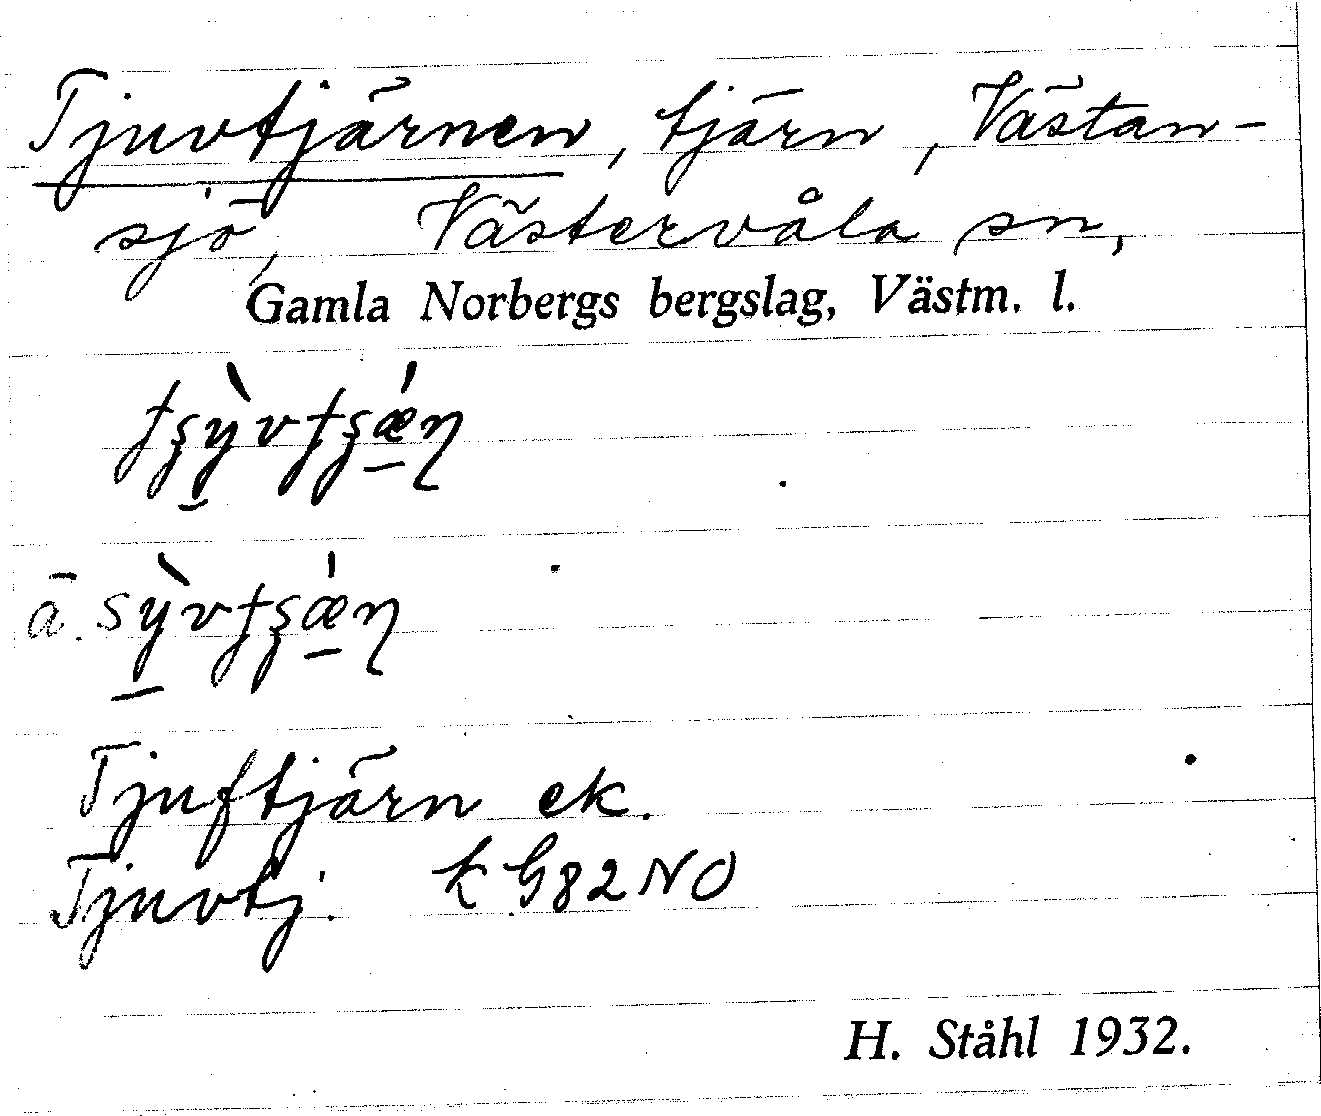 Tjuvtjärnen, tjärn, Västan-
sjö, Västervåla sn,
Gamla Norbergs bergslag, Västm. l.
ä.
Tjuftjärn ek.
Tjuvtj. k G82NO
H. Ståhl 1932.